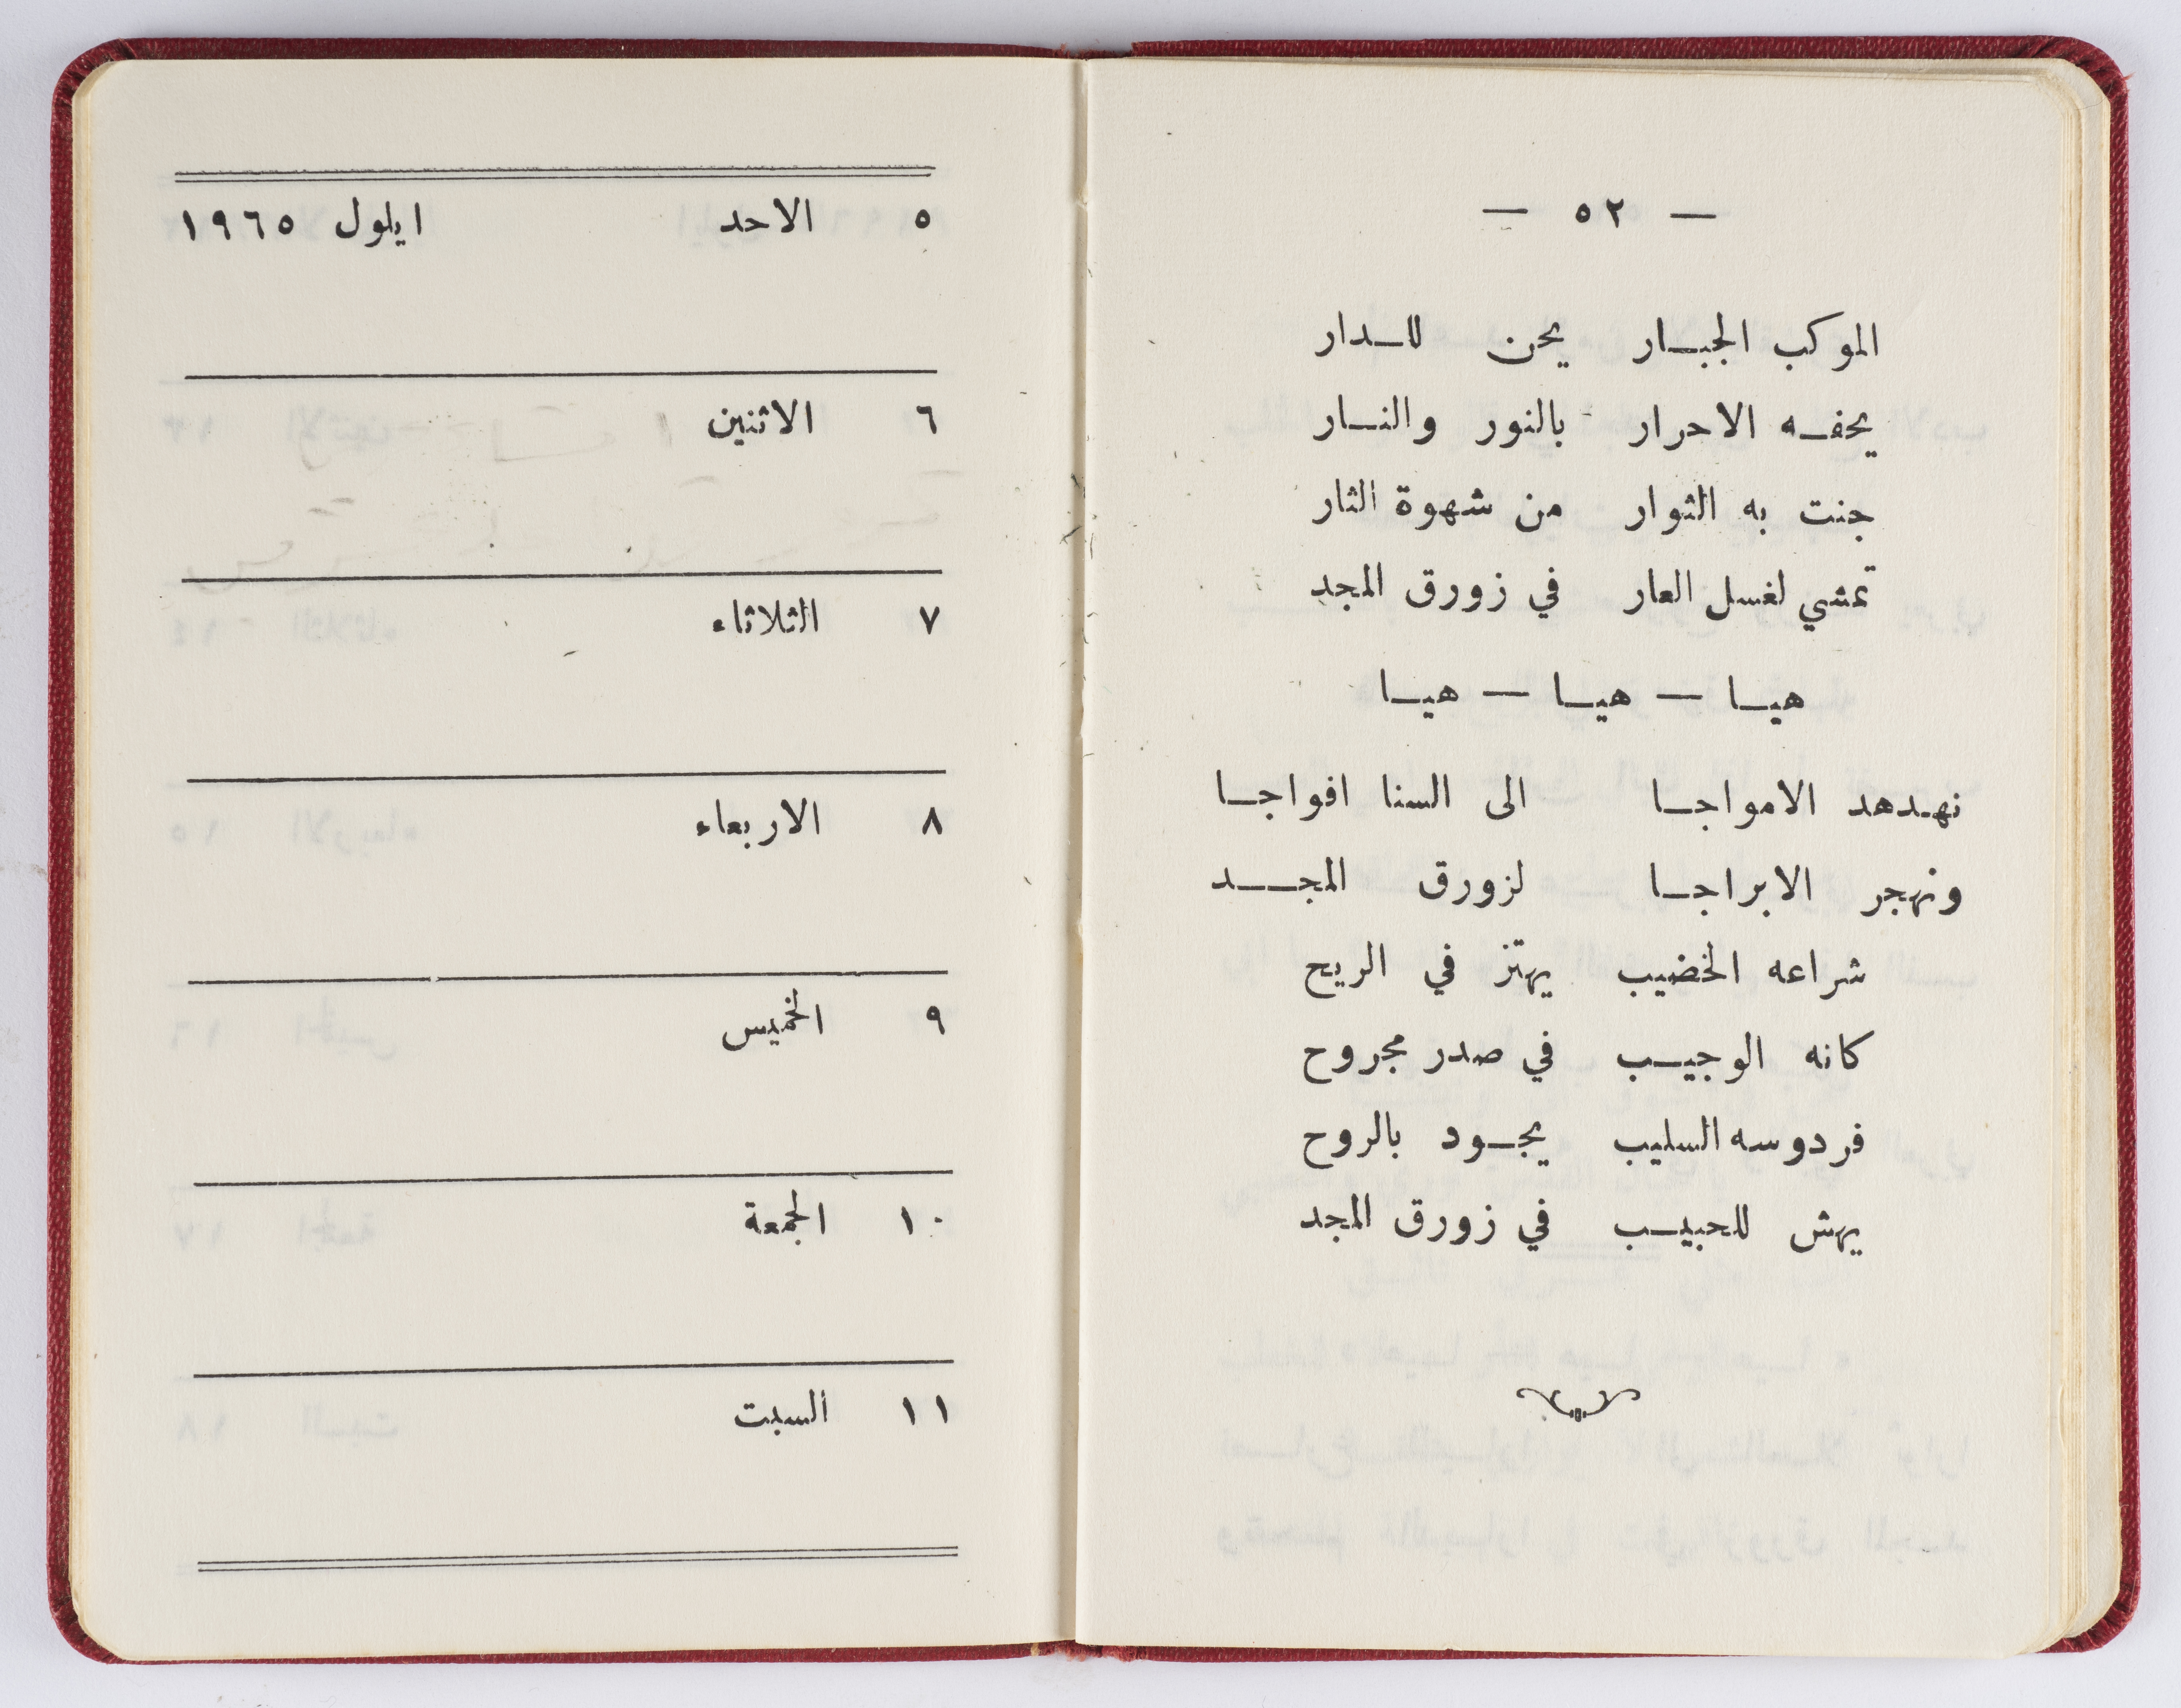 — ٥٢ —
الموكب الجبـار يحن للـدار
يحفـه الاحرار بالنور والنـار
جنت به الثوار من شهوة الثار
تمشي لغسل العار في زورق المجد
هيـا — هيـا — هيـا
نهدهد الامواجـا الى السنا افواجـا
ونهجر الابراجـا لزورق المجــد
شراعه الخضيب يهتز في الريح
كانه الوجيـب في صدر مجروح
فردوسه السليب يجـود بالروح
يهش للحبيـب في زورق المجد
٥ الاحد ايلول ١٩٦٥
٦ الاثنين
٧ الثلاثاء
٨ الاربعاء
٩ الخميس
١٠ الجمعة
١١ السبت